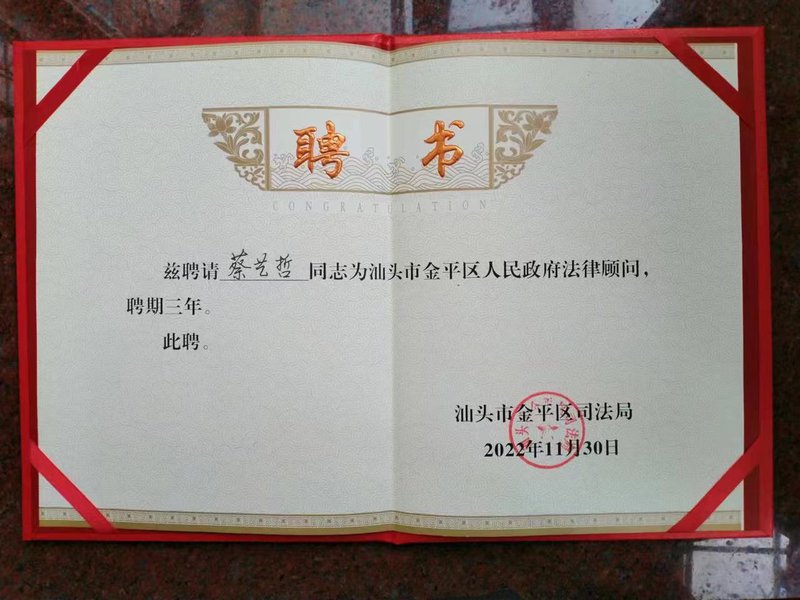 聘书
CONGRATULATION
兹聘请 蔡艺哲 同志为汕头市金平区人民政府法律顾问，
聘期三年。
此聘。
汕头市金平区司法局
2022年11月30日